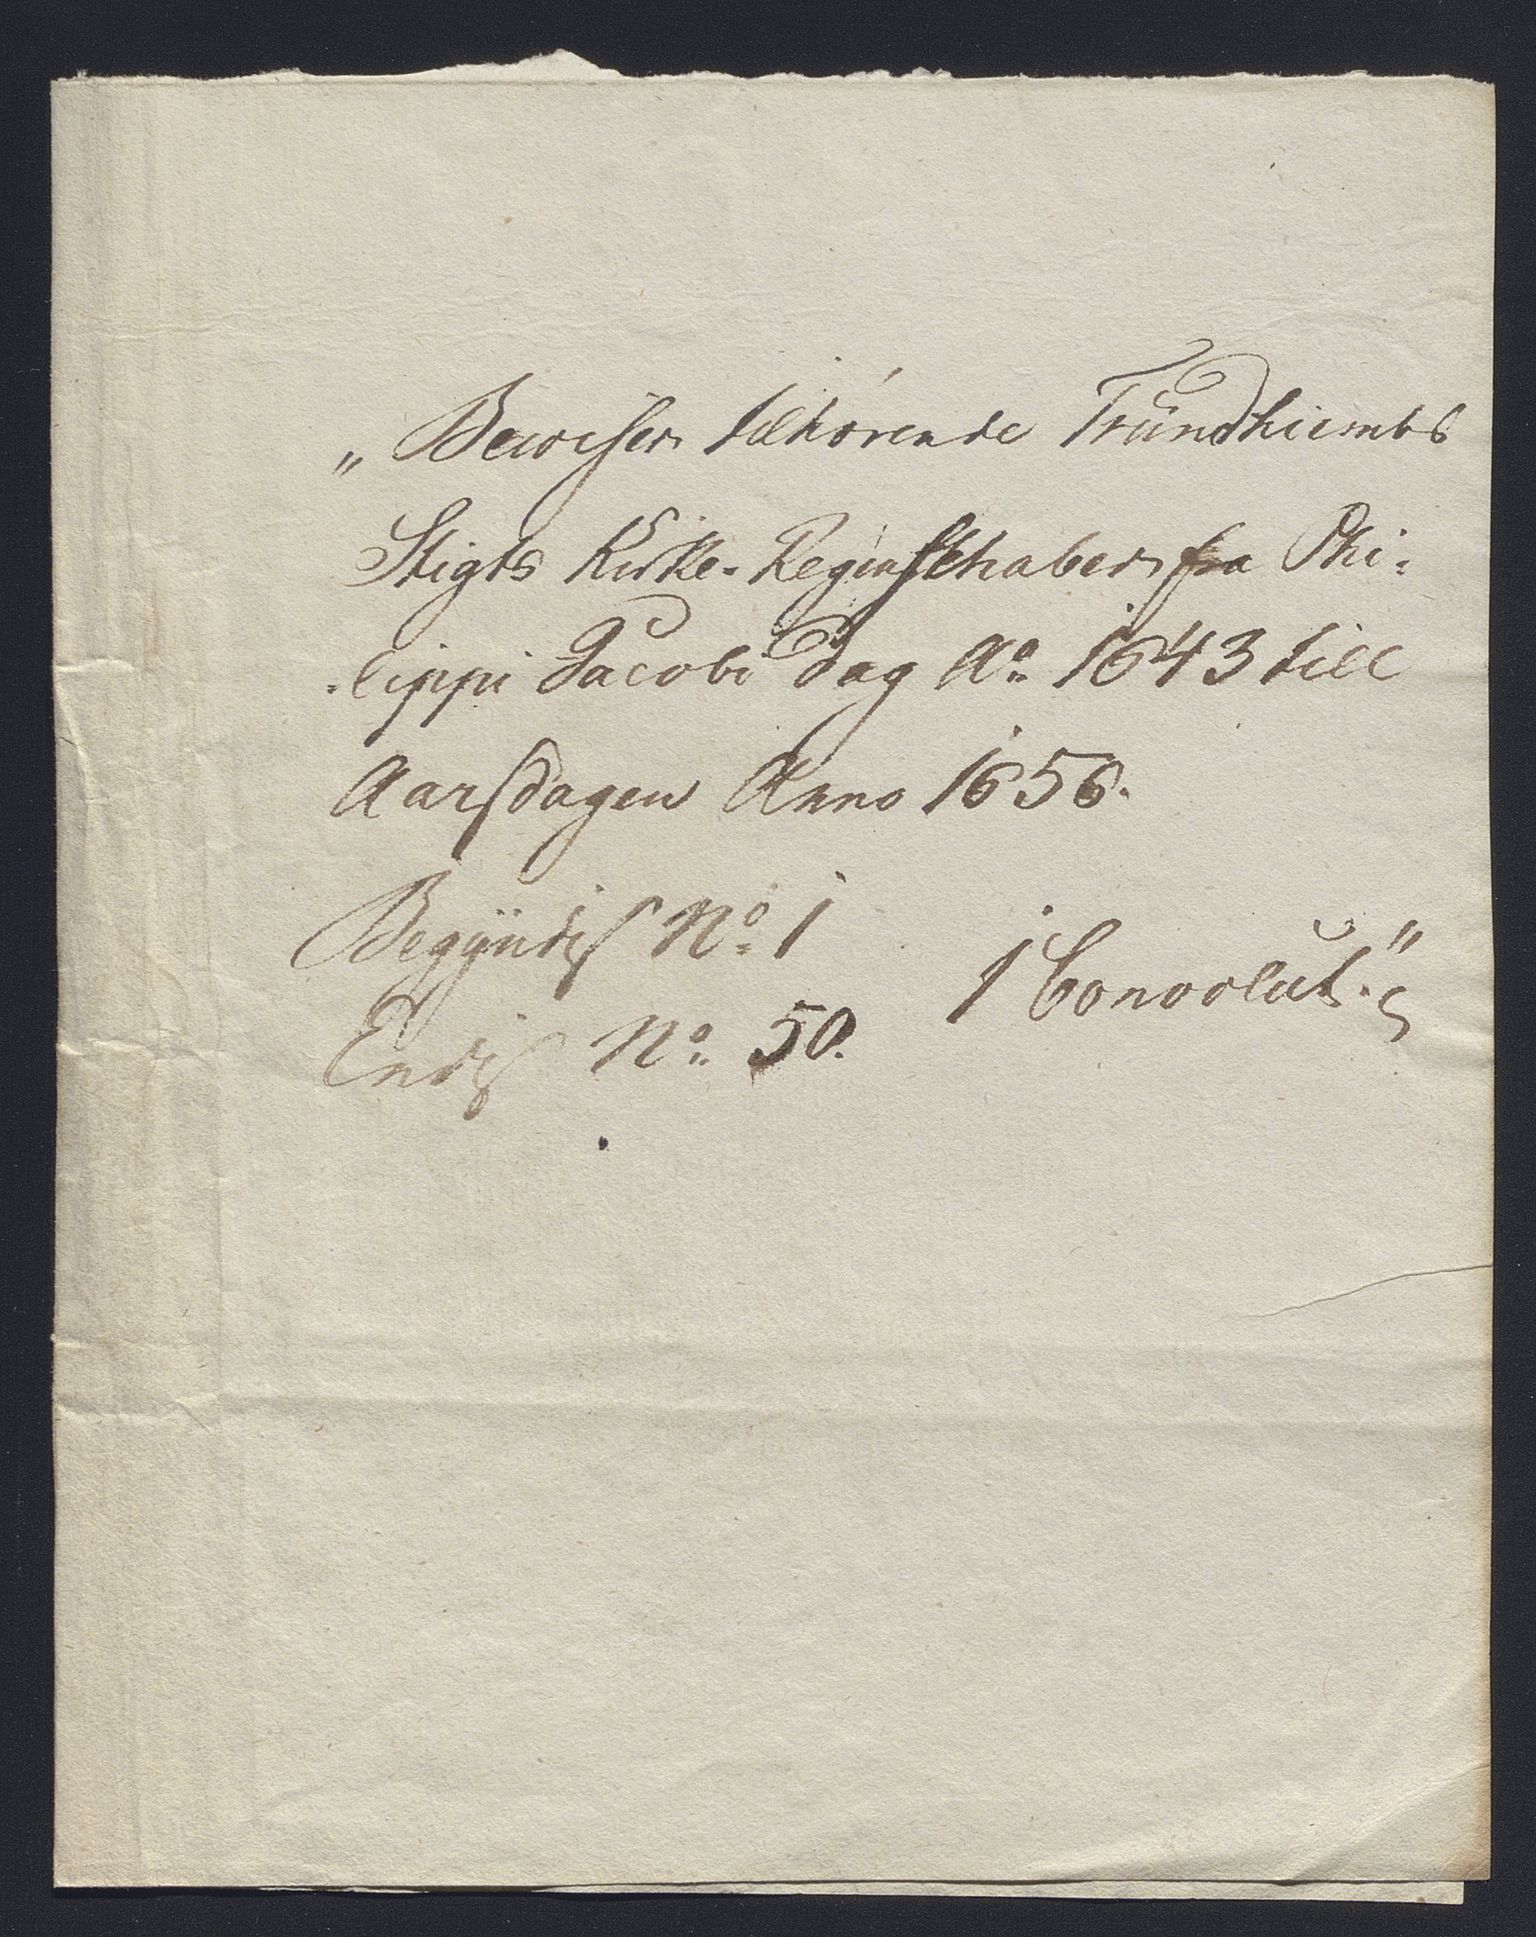 „Beviser tilhørende Trundhiembs
Stigts Kirke-Regenskaber fra Phi-
-lippi Jacobi dag Ao. 1643 till
Aarsdagen Anno 1656.
Begyndis No. 1
Endis No. 50.
1 Convolut."